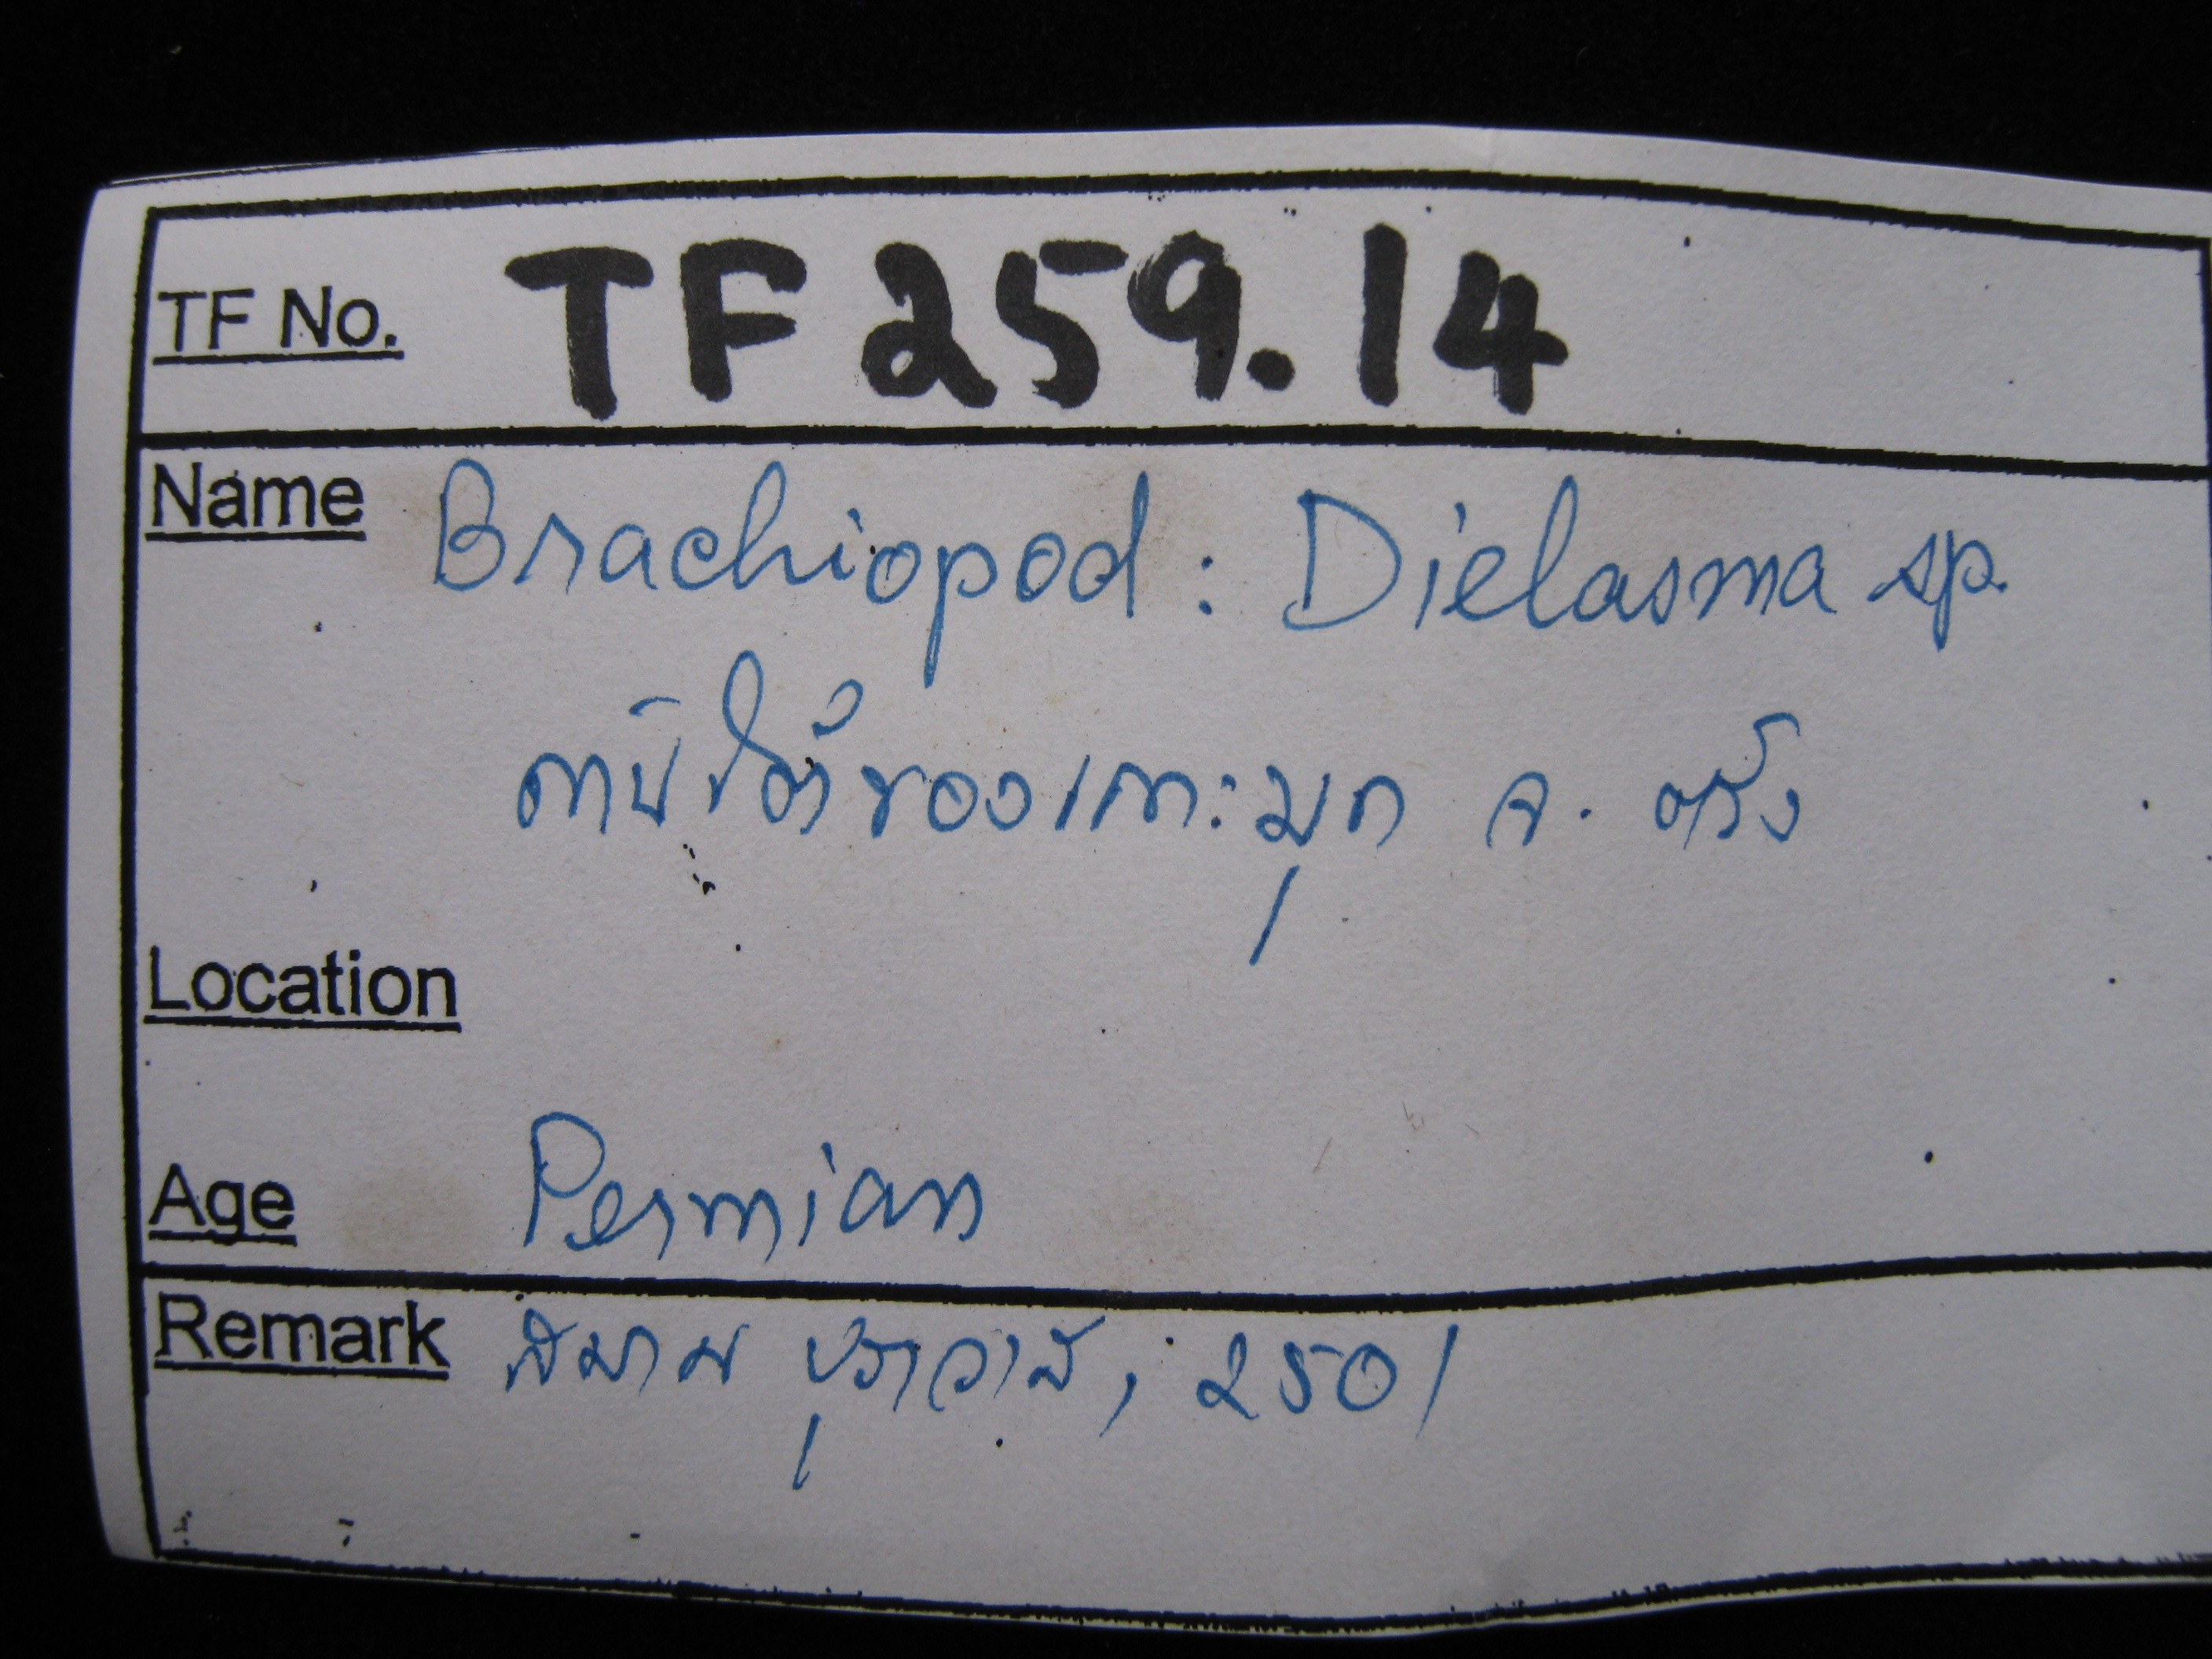 TF No. TF 259.14
Name Brachiopod : Dielasma sp.
ใต้ของเกาะมุก จ. ตรัง
Location
Age Permian
Remark สมาน บุราวาส, 2501